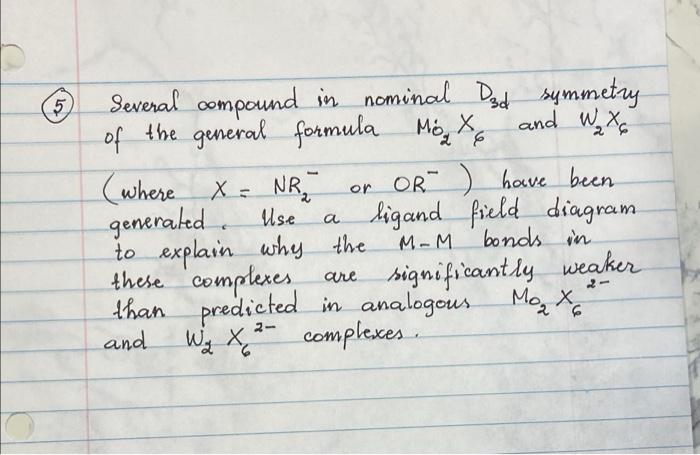 5 Several compound in nominal D3d symmetry
of the general formula Mo2X6 and W2X6
(where X = NR2⁻ or OR⁻) have been
generated. Use a ligand field diagram
to explain why the M-M bonds in
these complexes are significantly weaker
than predicted in analogous Mo2X6²⁻
and W2X6²⁻ complexes.